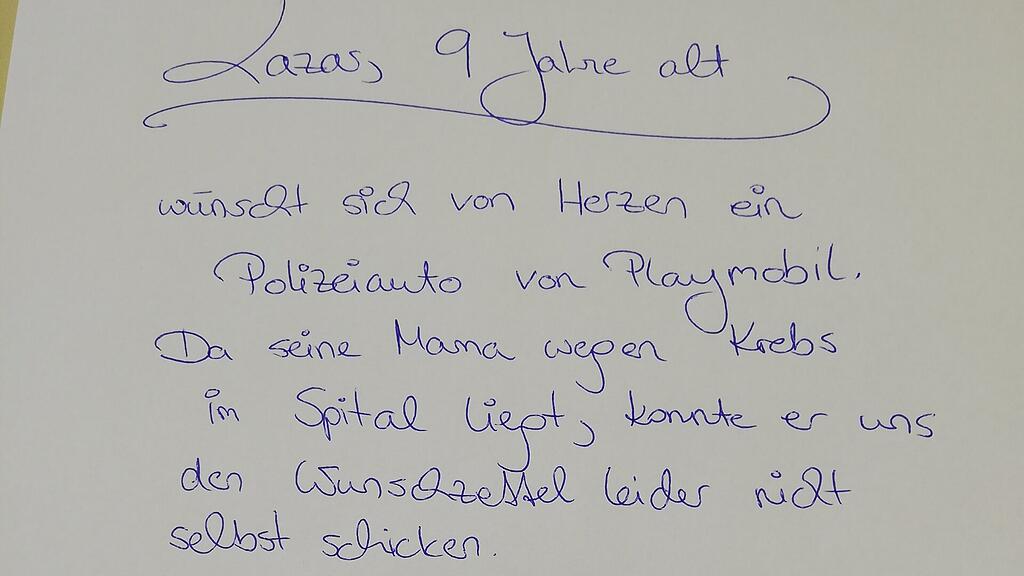 Lazas, 9 Jahre alt
wünscht sich von Herzen ein
Polizeiauto von Playmobil.
Da seine Mama wegen Krebs
im Spital liegt, konnte er uns
den Wunschzettel leider nicht
selbst schicken.